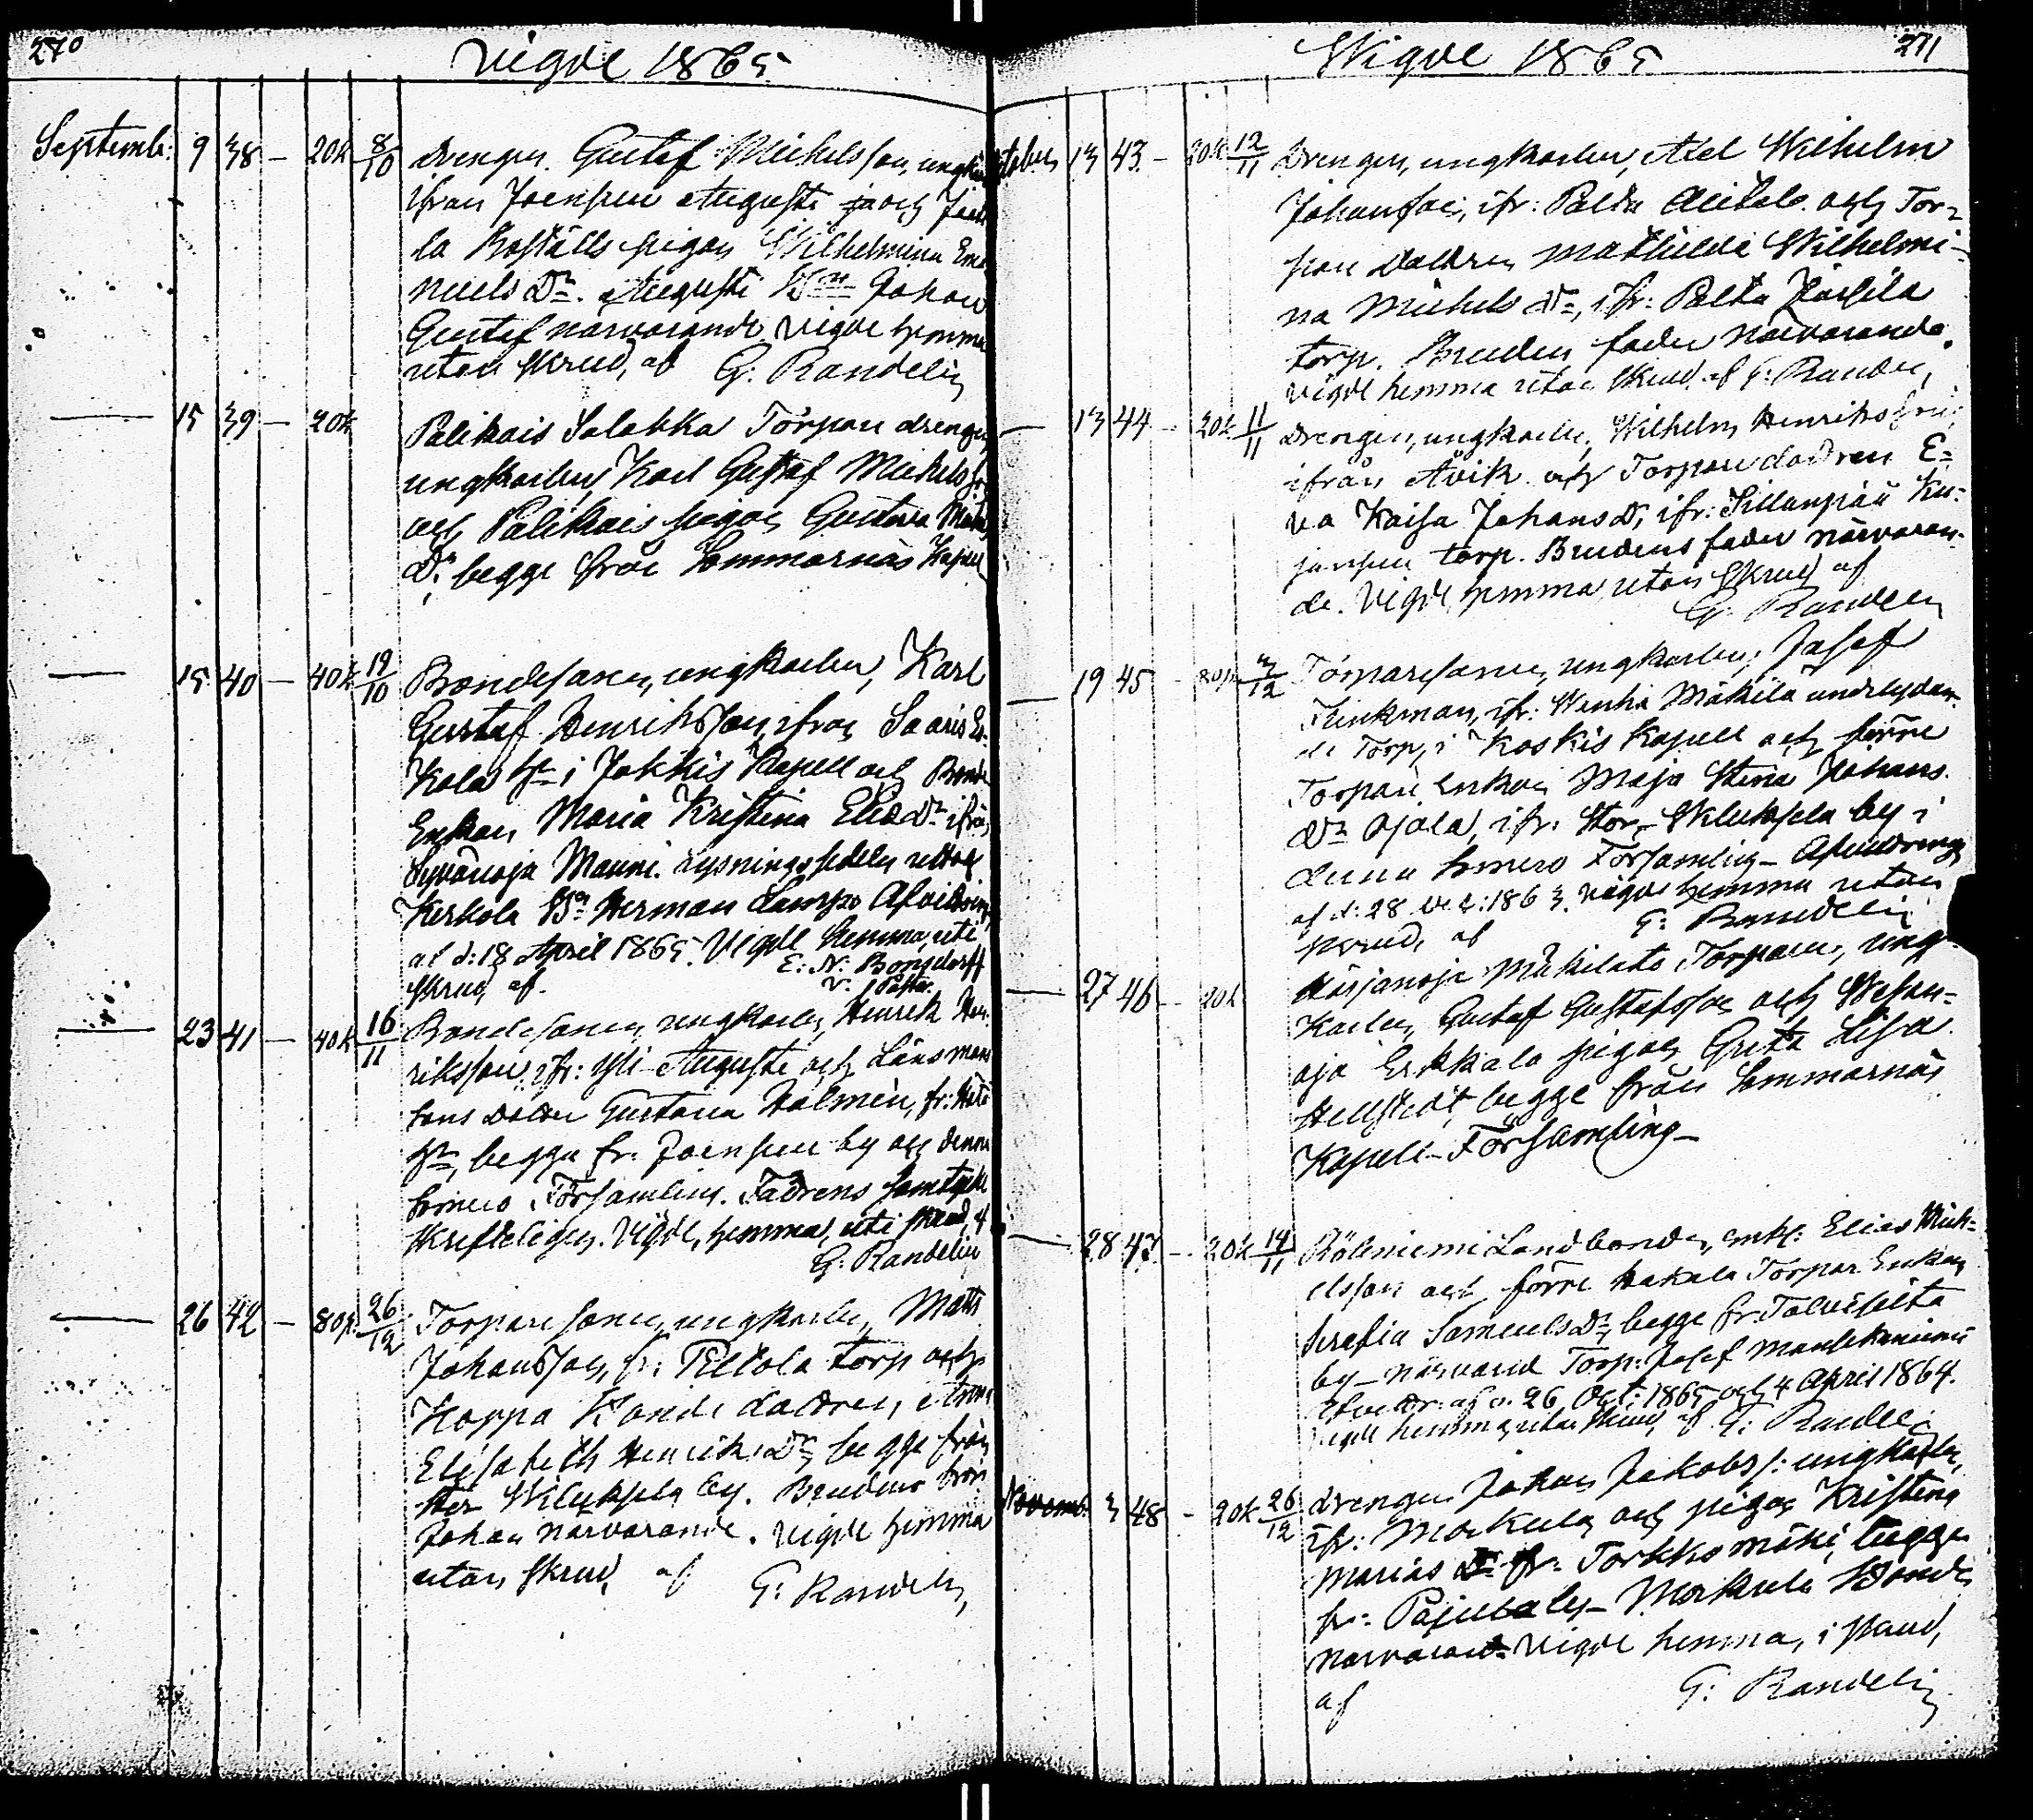 270
Vigde 1865.
Septemb: 9 38 – 20k 8/10 Drengen Gustaf Michelsson, ungk
ifrån Joensuu Augusti och
la Boställs pigan Wilhelmina Ema
nuels Dr. Augusti Johan
Gustaf närvarande. Vigde hemma
utan skrud, af G: Randelin
15 39 – 20k Palikais Salakka Torpare drengen,
ungkarlen Karl Gustaf Michelsson
och Palikais pigan Gustava Matts
Dr, begge från Sommarnäs Kapell
15 40 – 40k 19/10 Bondesonen, ungkarlen, Karl
Gustaf Henriksson, ifrån Saaris
Kola i Jokkis Kapell och Bonde
Enkan Maria Kristina Elias Dr ifrån
Syvänoja Manni. Lysningssedeln uttog
Kerkola Herman Lampo Afvittring
af d: 18 April 1865. Vigde hemma, uti
skrud, af E: N: Bongdorff
v. Past:
23 41 – 40k 16/11 Bondesonen, ungkarlen, Henrik Hen-
riksson, ifr: Yli Augusti och Länsmans
sons Dotter Gustava Holmén, fr:
begge fr. Joensuu by och denna
Somero Församling. Fadrens samtycke
skrifteligen. Vigde, hemma, uti skrud, af
G: Randelin
26 42 – 80p. 26/12 Torparesonen, ungkarlen, Matts
Johansson, fr: Piltola torp och
Hoppa Bonde dottren, Anna
Elisabeth Henriks Dr, begge från
Stor Wiluksela by. Brudens bror
Johan närvarande. Vigde hemma
utan skrud, af G: Randelin,
Wigde 1865
271
October 13 43 – 20k 12/11 Drengen, ungkarlen, Axel Wilhelm
Johansson, ifr: Palta och Tor-
pare dottren Mathilda Wilhelmi-
na Michels Dr, ifr: Palta Jussila
torp. Brudens fader närvarande.
Vigde hemma utan skrud, af G: Randelin,
13 44 – 20k 11/11 Drengen, ungkarlen, Wilhelm Henriksson,
ifrån Åvik och Torpare dottren E-
va Kaisa Johans D, ifr: Sillanpää
torp. Brudens fader närvaran-
de. Vigde, hemma, utan skrud af
G: Randelin
19 45 – 80p 3/12 Torparesonen, ungkarlen, Josef
Finkman, ifr: Wenha Mäkilä underlydan-
de Torp, i Koskis Kapell och förre
Torpare Enkan Maja Stina Johans
Dr Ojala, ifr: Stor-Wiluksela by i
denna Somero Församling – Afvittring
af d: 28 Dec: 1863. Vigde hemma utan
skrud, af G: Randelin
27 46 – 20k Härjanoja Mäkilato Torpare, ung-
karlen Gustaf Gustafsson och
oja Erkkala pigan Greta Lisa
Hellstedt, begge från Sommarnäs
Kapell-Församling –
28 47 – 20k 14/11 Landbonden, enkl: Elias Mick-
elsson och förre Hakala Torpar Enkan
Serafia Samuels Dr, begge fr: Talvisilta
by – närvarand Torp: Josef
Afvittr: af d. 26 Oct: 1865 och 4 April 1864.
Vigde hemma, utan skrud, af G: Randelin
Novemb: 3 48 – 20k 26/12 Drengen Johan Jakobs s: ungkarlen,
ifr: Markula och pigan Kristina
Marias Dr fr: Torkkomäki, begge
fr: Pajula by – Markula Bonde
närvarand Vigde hemma, i skrud,
af G: Randelin